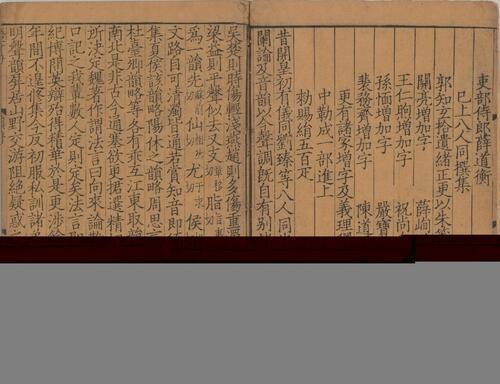 吏部侍郎薛道衡
已上八人同撰集
郭知玄拾遺緒正更以朱箋
關亮增加字 薛峋
王仁煦增加字 祝尚
孫愐增加字 嚴寶
裴務齊增加字 陳道
更有諸家增字及義理
中勒成一部進上
勑賜絹五百疋
昔開皇初有儀同劉臻等八人同
闌論及音韻以今聲調既自有別
吳楚則時傷輕淺燕趙則多傷重
梁益則平聲似去又支章移切脂旨夷切
爲一韻先蘇前切仙相然切尤于求切侯
文路自可清濁皆通若賞知音即
集夏侯該韻略陽休之韻略周思
杜臺卿韻略等各有乖互江東取韻
南北是非古今通塞欲更捃選精
所決定魏著作謂法言曰向來論
口記之我輩數人定則定矣法言即
紀博問英辯殆得精華於是更涉餘
年間不遑修集今返初服私訓諸
明聲韻屏居山野交游阻絕疑惑